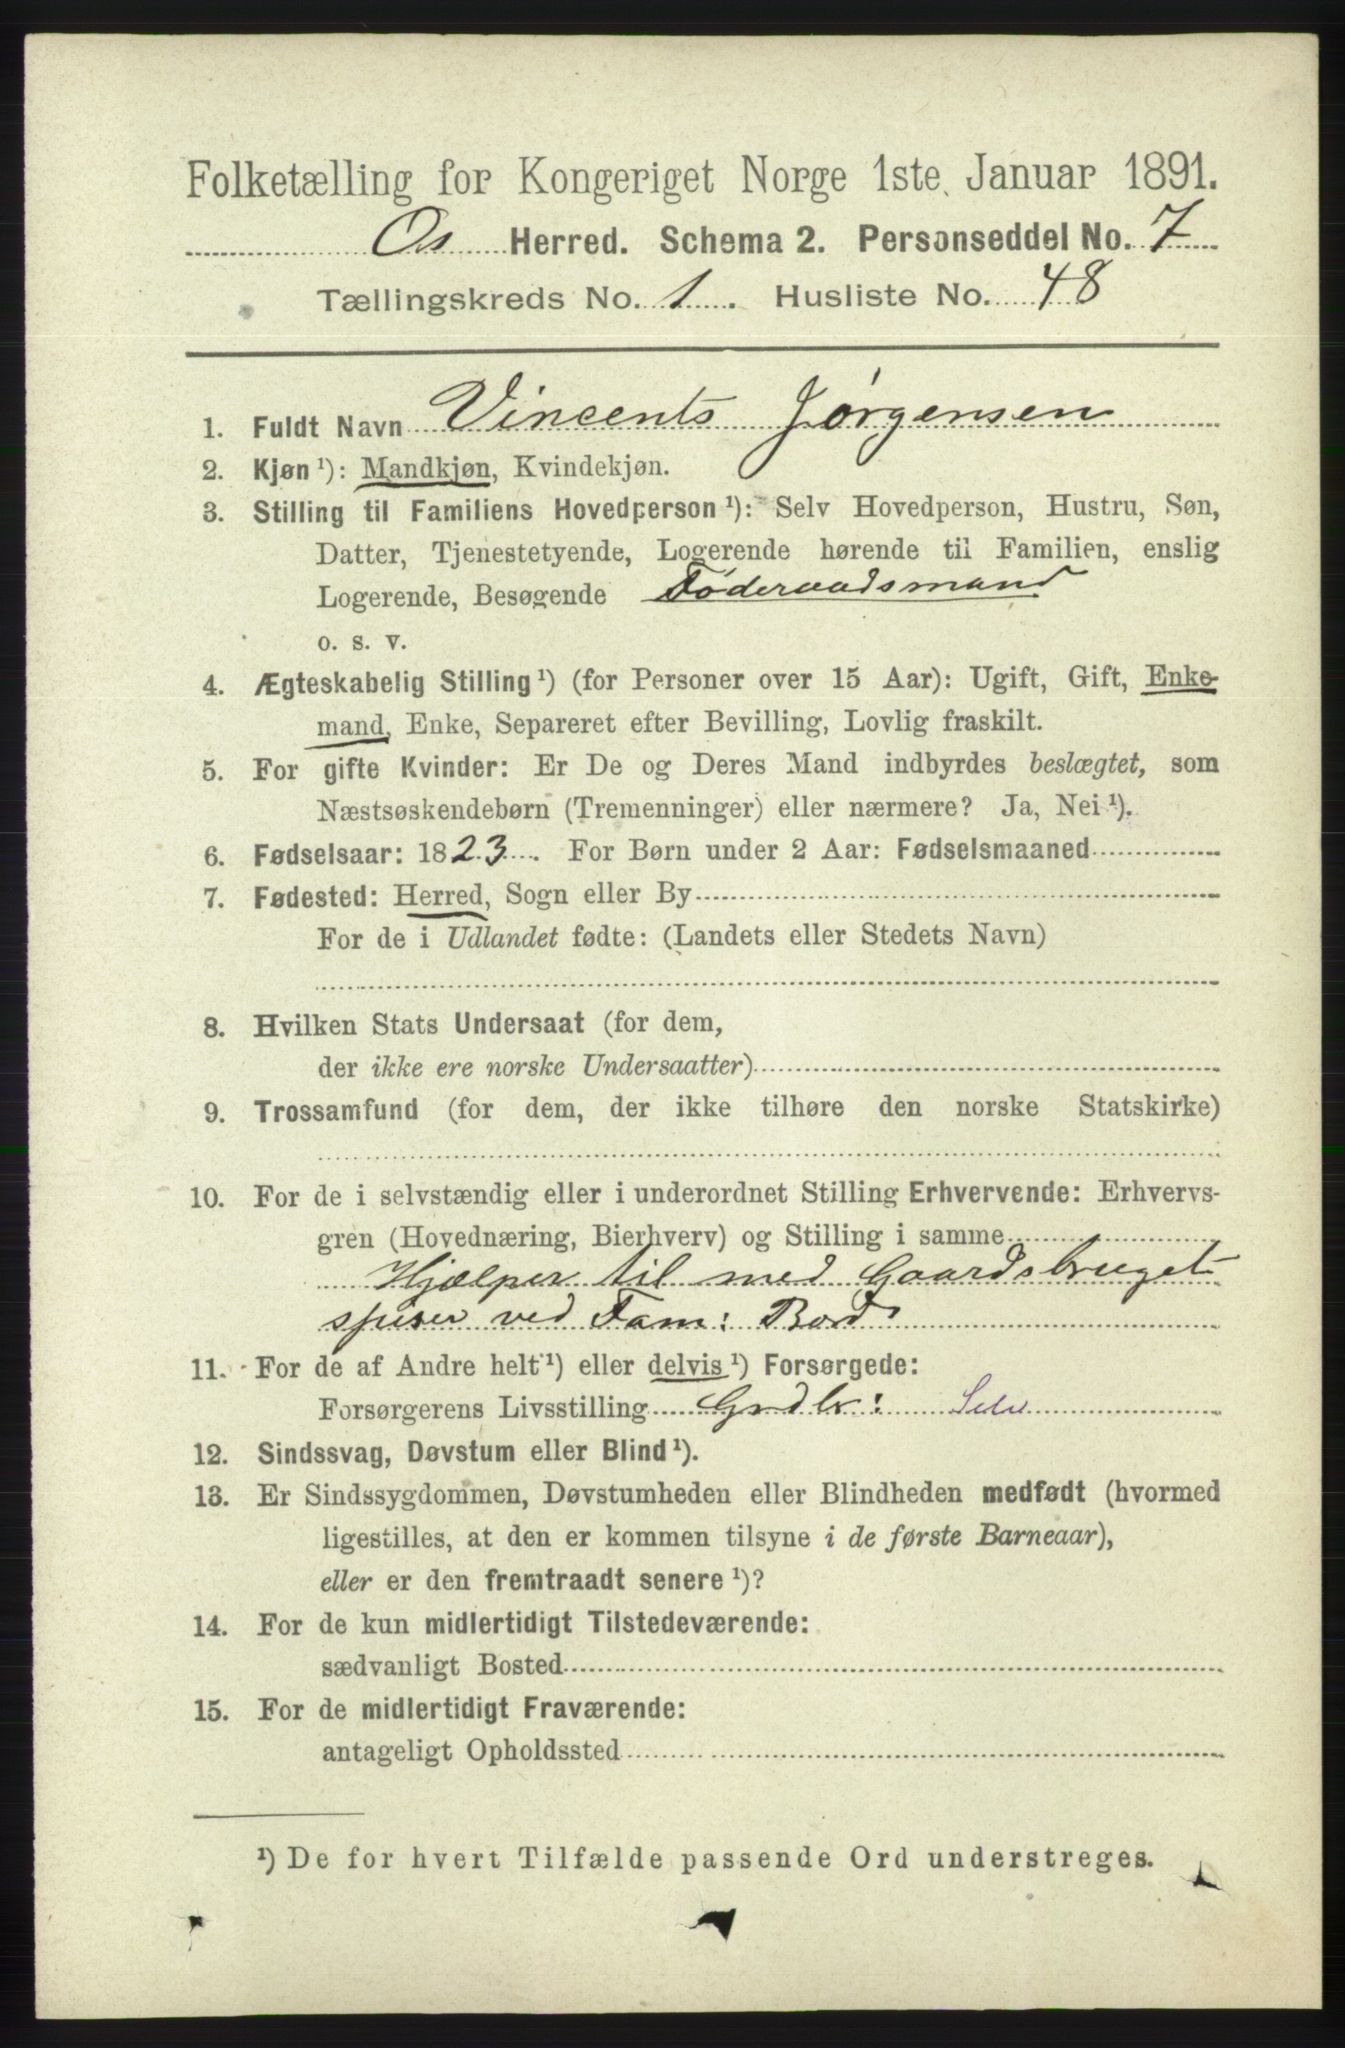 Folketælling for Kongeriget Norge 1ste Januar 1891.
Os Herred. Schema 2. Personseddel No. 7
Tællingskreds No. 1. Husliste No. 48
1. Fuldt Navn Vincents Jørgensen
2. Kjøn ¹): Mandkjøn, Kvindekjøn.
3. Stilling til Familiens Hovedperson ¹): Selv Hovedperson, Hustru, Søn,
Datter, Tjenestetyende, Logerende hørende til Familien, enslig
Logerende, Besøgende Føderaadsmand
o. s. v.
4. Ægteskabelig Stilling ¹) (for Personer over 15 Aar): Ugift, Gift, Enke-
mand, Enke, Separeret efter Bevilling, Lovlig fraskilt.
5. For gifte Kvinder: Er De og Deres Mand indbyrdes beslægtet, som
Næstsøskendebørn (Tremenninger) eller nærmere? Ja, Nei ¹).
6. Fødselsaar: 1823. For Børn under 2 Aar: Fødselsmaaned
7. Fødested: Herred, Sogn eller By
For de i Udlandet fødte: (Landets eller Stedets Navn)
8. Hvilken Stats Undersaat (for dem,
der ikke ere norske Undersaatter)
9. Trossamfund (for dem, der ikke tilhøre den norske Statskirke)
10. For de i selvstændig eller i underordnet Stilling Erhvervende: Erhvervs-
gren (Hovednæring, Bierhverv) og Stilling i samme
Hjælper til med Gaardsbruget
spiser ved Fam: Bord
11. For de af Andre helt ¹) eller delvis ¹) Forsørgede:
Forsørgerens Livsstilling Grdbr: Selv
12. Sindssvag, Døvstum eller Blind ¹).
13. Er Sindssygdommen, Døvstumheden eller Blindheden medfødt (hvormed
ligestilles, at den er kommen tilsyne i de første Barneaar),
eller er den fremtraadt senere ¹)?
14. For de kun midlertidigt Tilstedeværende:
sædvanligt Bosted
15. For de midlertidigt Fraværende:
antageligt Opholdssted
¹) De for hvert Tilfælde passende Ord understreges.